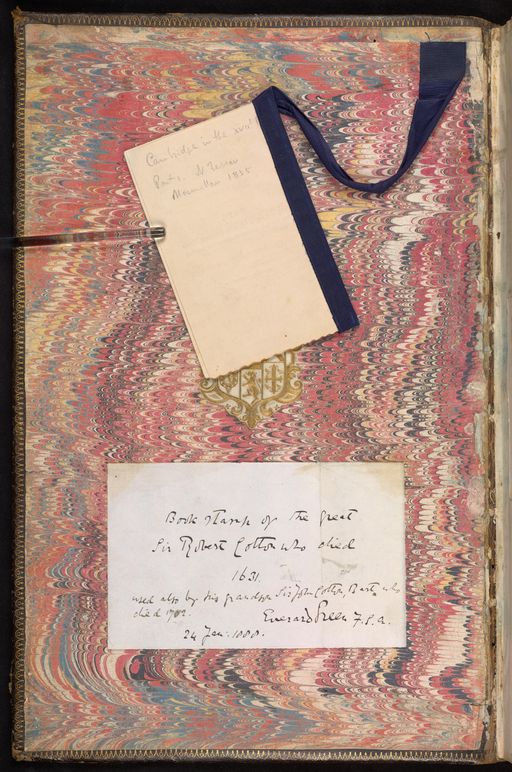 Cambridge in the XVIIth
Part 1.
Macmillan 1855
Book stamp of the great
Sir Robert Cotton who died
1631.
used also by his grandson Sir John Cotton, Bart. who
died 1702.
Everard Green F.S.A.
24 Jan: 1888.